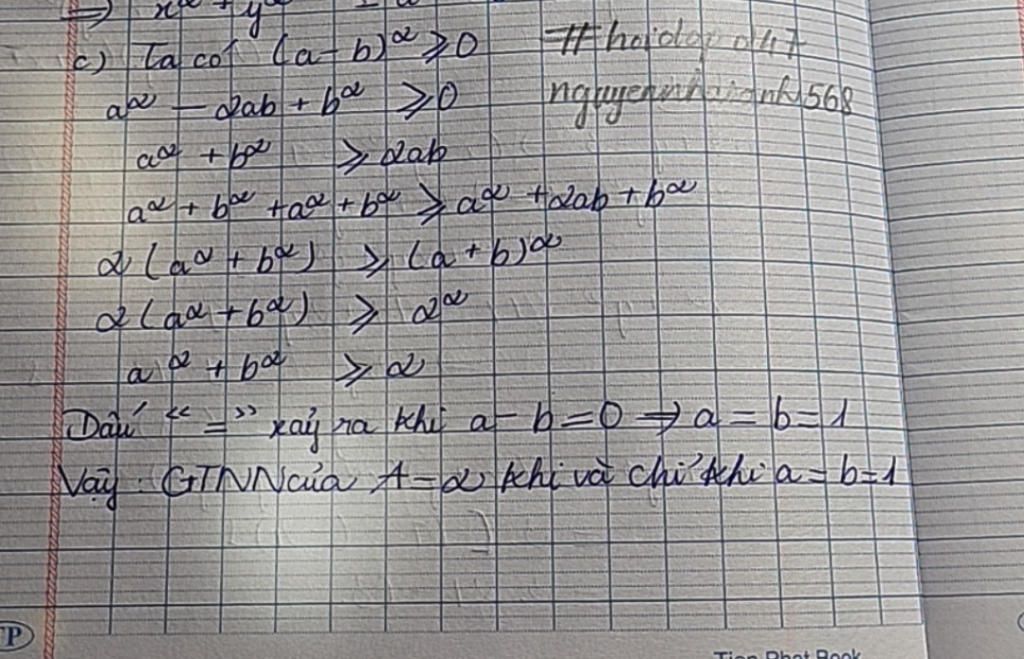 ⇒ x² + y²
c) Ta có (a-b)² ⩾ 0 #hoidap 247
nguyen 568
a² - 2ab + b² ⩾ 0
a² + b² ⩾ 2ab
a² + b² + a² + b² ⩾ a² + 2ab + b²
2 (a² + b²) ⩾ (a + b)²
2 (a² + b²) ⩾ 2²
a² + b² ⩾ 2
Dấu "=" xảy ra khi a - b = 0 ⇒ a = b = 1
Vậy : GTNN của A = 2 khi và chỉ khi a = b = 1
TP
Tien Phat Book